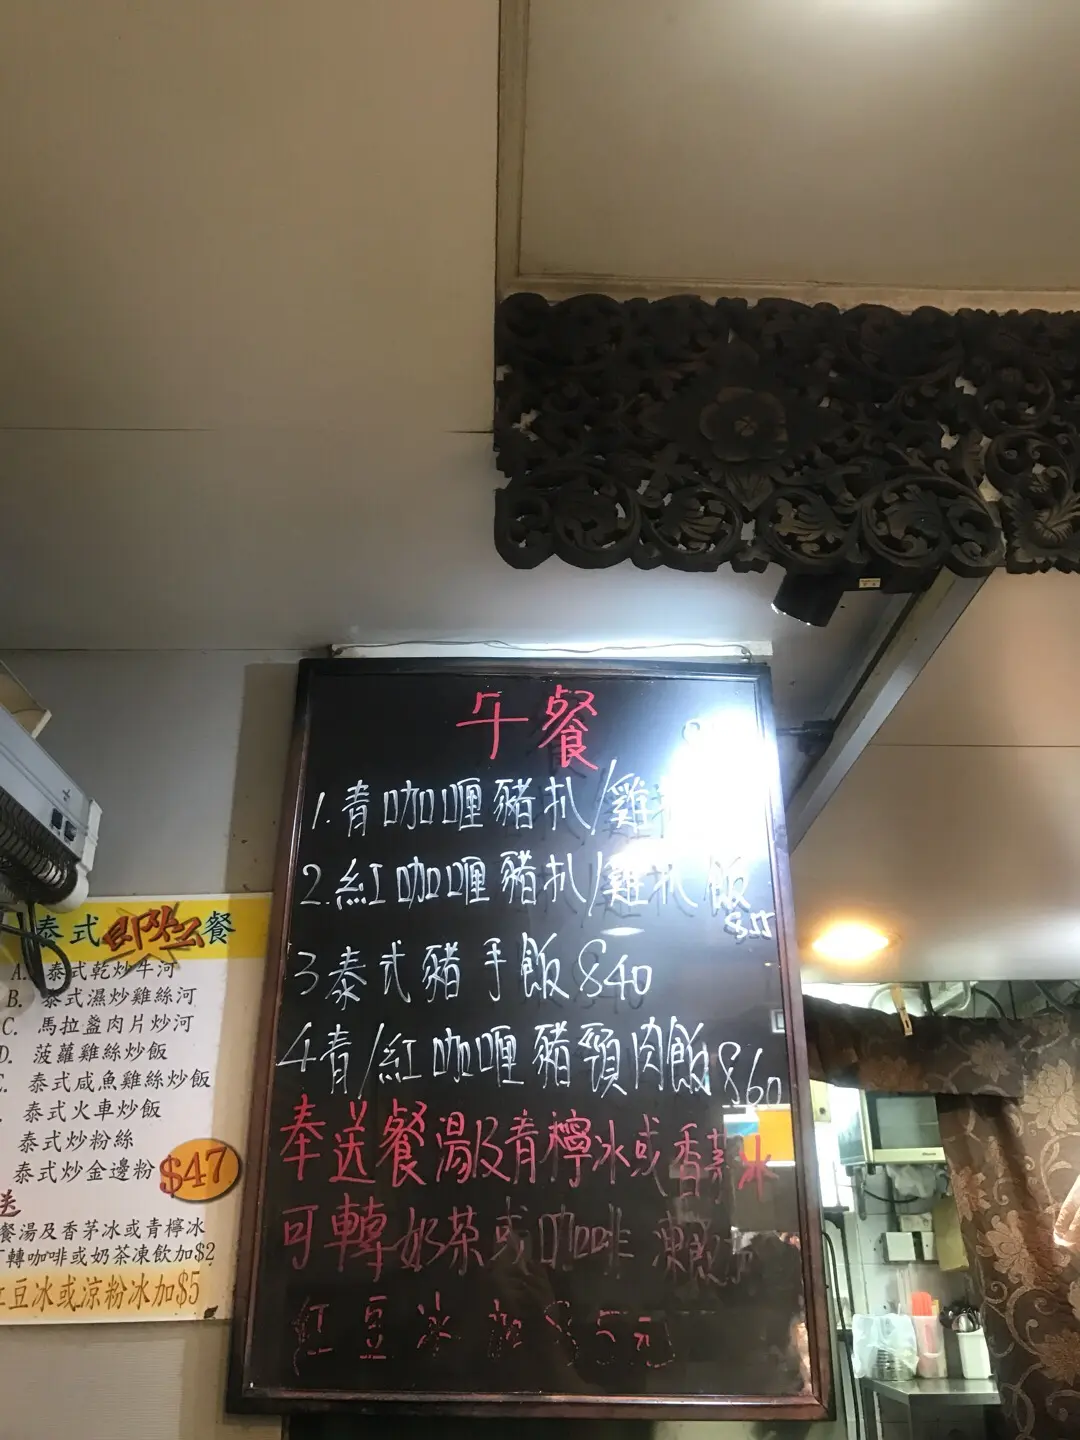 午餐
1.青咖喱豬扒/雞
2.紅咖喱豬扒/雞扒飯
$55
3泰式豬手飯$40
4青/紅咖喱豬頸肉飯$60
奉送餐湯及青檸冰或香茅冰
可轉奶茶或咖啡凍飲
紅豆冰加$5元
泰式即炒餐
A. 泰式乾炒牛河
B. 泰式濕炒雞絲河
C. 馬拉盞肉片炒河
D. 菠蘿雞絲炒飯
泰式咸魚雞絲炒飯
泰式火車炒飯
泰式炒粉絲
泰式炒金邊粉
$47
送
餐湯及香茅冰或青檸冰
轉咖啡或奶茶凍飲加$2
紅豆冰或涼粉冰加$5